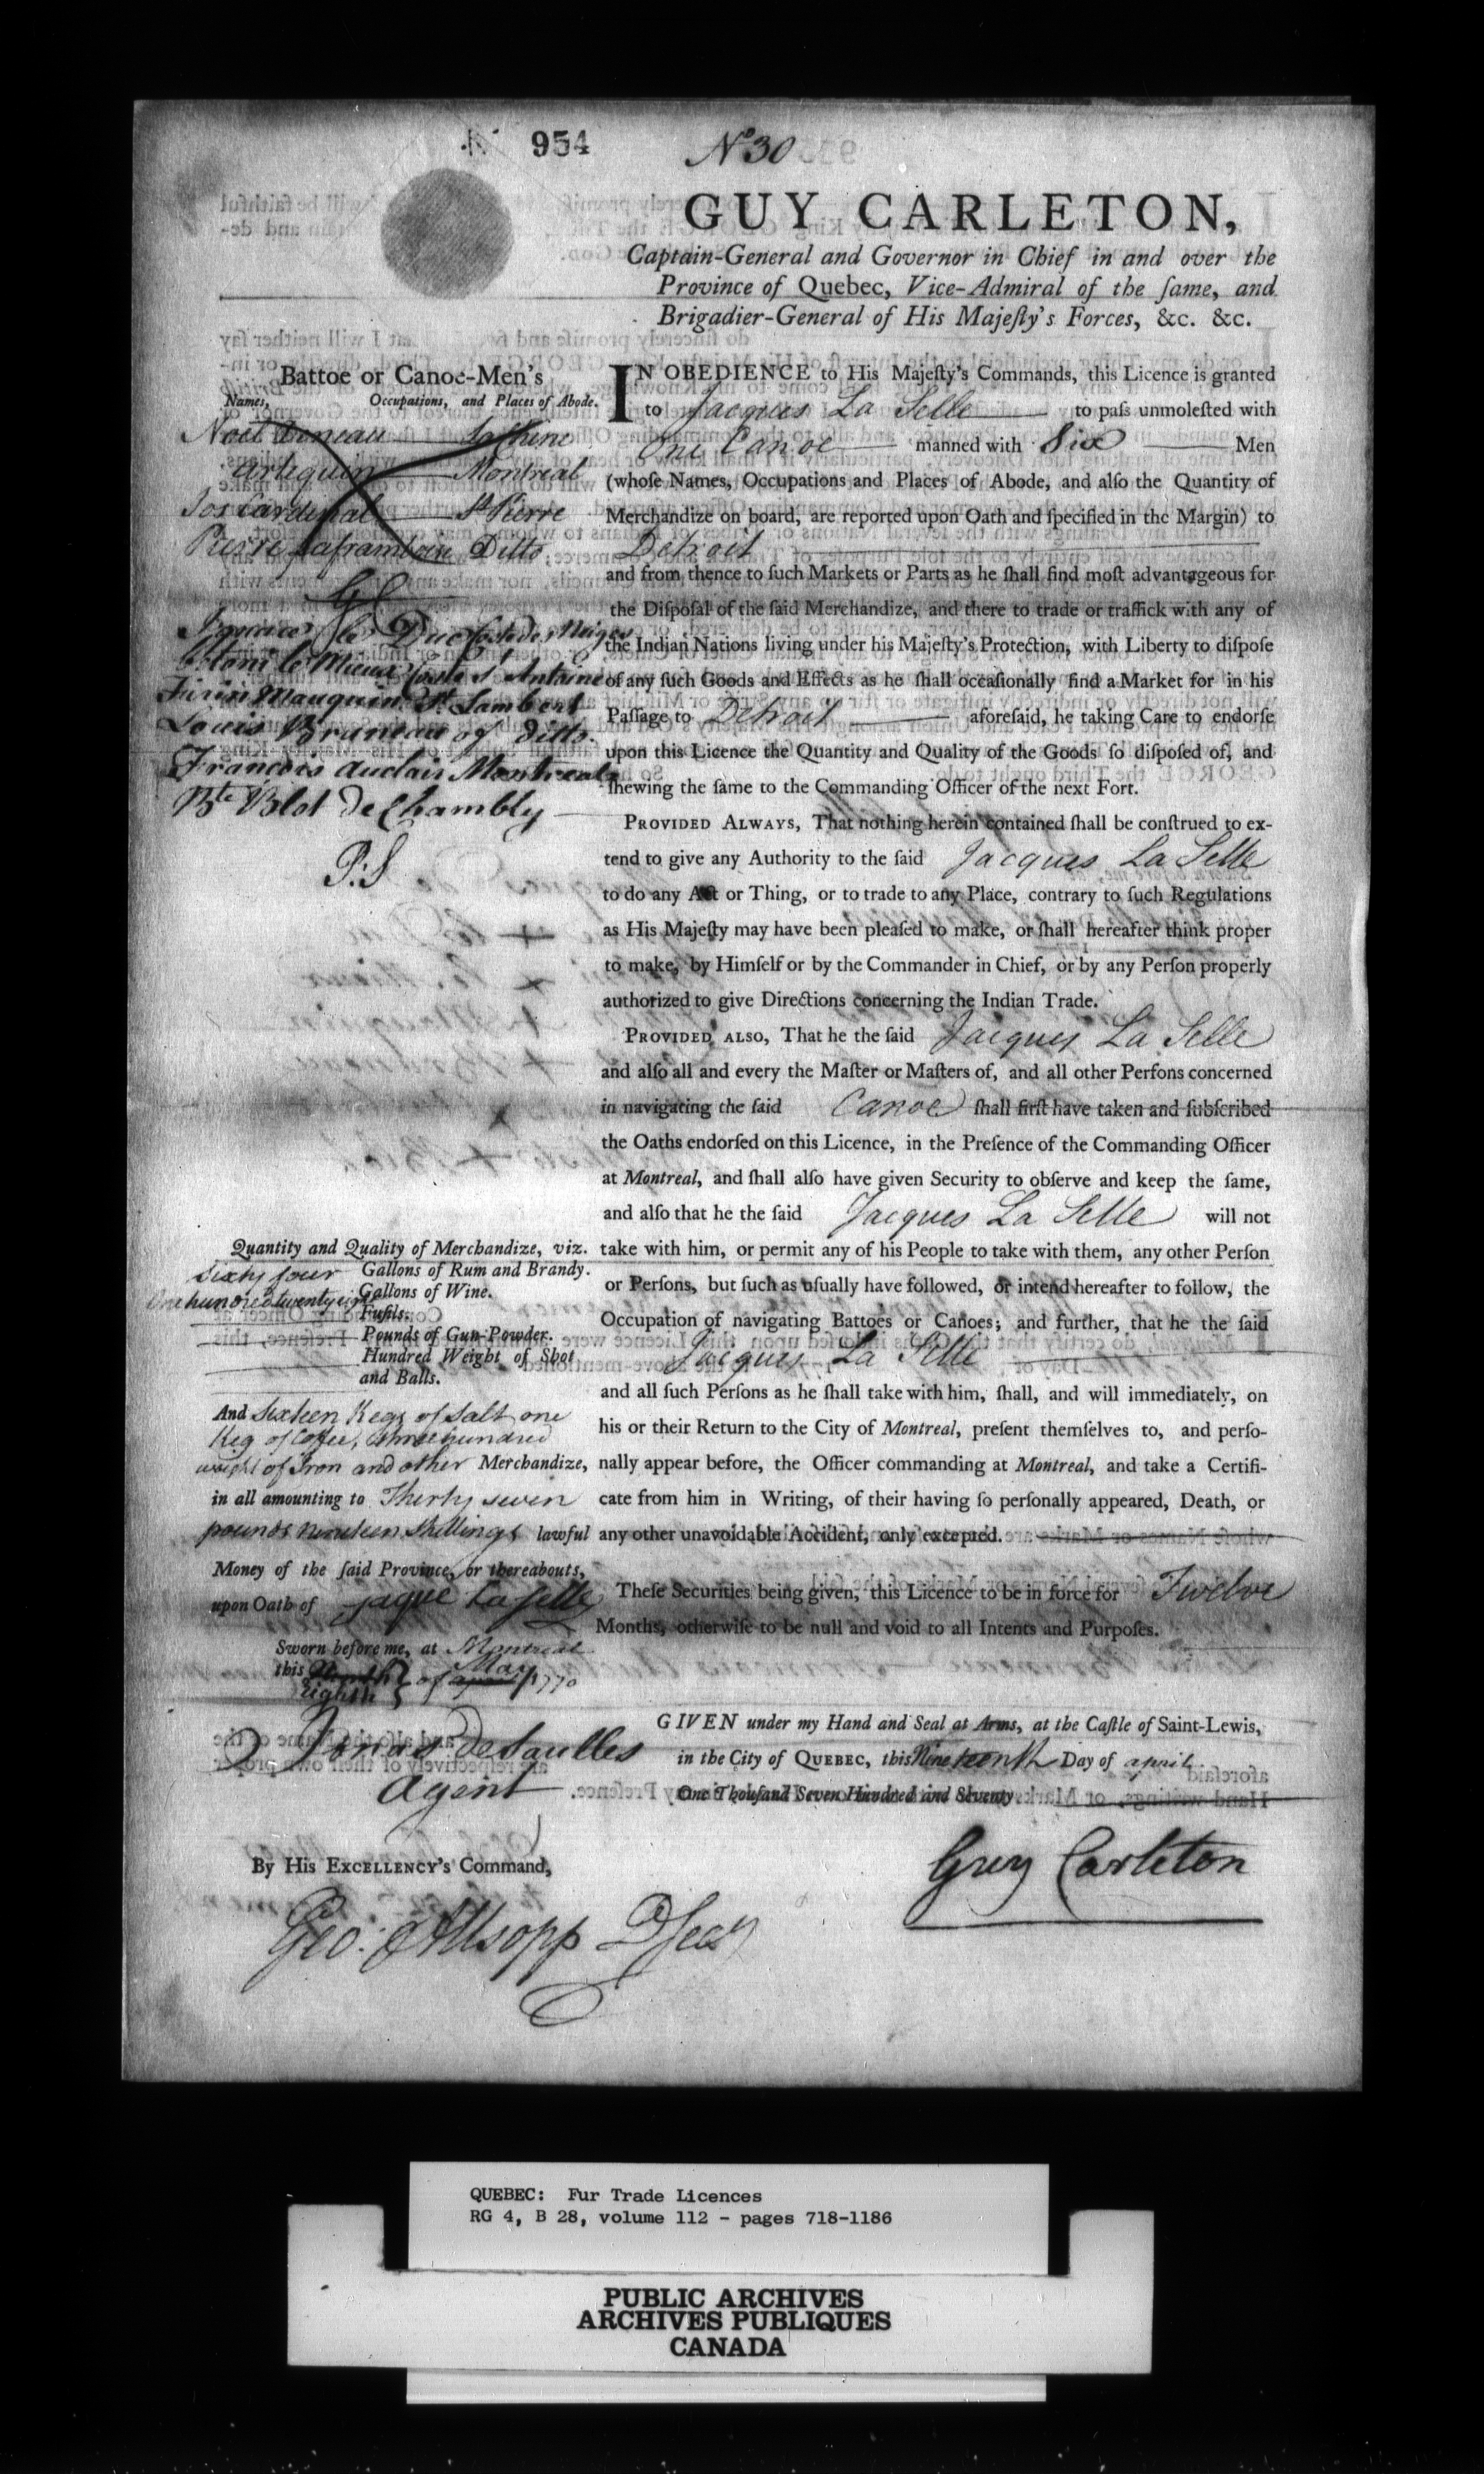 954
No 30
GUY CARLETON,
Captain-General and Governor in Chief in and over the
Province of Quebec, Vice-Admiral of the ſame, and
Brigadier-General of His Majeſty's Forces, &c. &c.
Battoe or Canoe-Men's
Names, Occupations, and Places of Abode.
Noel Lachine
Montreal
Jos Cardinal St Pierre
Pierre Laframboise Ditto
GC
le Duc Coste des Neiges
le Mieux Coste St Antoine
Mauquin St. Lambert
Louis Bruneau of Ditto.
Francois Auclair Montreal
Bte Blot de Chambly
P:S
IN OBEDIENCE to His Majeſty's Commands, this Licence is granted
to Jacques La Selle to paſs unmoleſted with
One Canoe manned with Six Men
(whoſe Names, Occupations and Places of Abode, and alſo the Quantity of
Merchandize on board, are reported upon Oath and ſpecified in the Margin) to
Detroit
and from thence to ſuch Markets or Parts as he ſhall find moſt advantageous for
the Diſpoſal of the ſaid Merchandize, and there to trade or traffick with any of
the Indian Nations living under his Majeſty's Protection, with Liberty to diſpoſe
of any ſuch Goods and Effects as he ſhall occaſionally find a Market for in his
Paſſage to Detroit aforeſaid, he taking Care to endorſe
upon this Licence the Quantity and Quality of the Goods ſo diſpoſed of, and
ſhewing the ſame to the Commanding Officer of the next Fort.
PROVIDED ALWAYS, That nothing herein contained ſhall be conſtrued to ex-
tend to give any Authority to the ſaid Jacques La Selle
to do any Act or Thing, or to trade to any Place, contrary to ſuch Regulations
as His Majeſty may have been pleaſed to make, or ſhall hereafter think proper
to make, by Himſelf or by the Commander in Chief, or by any Perſon properly
authorized to give Directions concerning the Indian Trade.
PROVIDED ALSO, That he the ſaid Jacques La Selle
and alſo all and every the Maſter or Maſters of, and all other Perſons concerned
in navigating the ſaid Canoe ſhall firſt have taken and ſubſcribed
the Oaths endorſed on this Licence, in the Preſence of the Commanding Officer
at Montreal, and ſhall alſo have given Security to obſerve and keep the ſame,
and alſo that he the ſaid Jacques La Selle will not
take with him, or permit any of his People to take with them, any other Perſon
or Perſons, but ſuch as uſually have followed, or intend hereafter to follow, the
Occupation of navigating Battoes or Canoes; and further, that he the ſaid
Jacques La Selle
and all ſuch Perſons as he ſhall take with him, ſhall, and will immediately, on
his or their Return to the City of Montreal, preſent themſelves to, and perſo-
nally appear before, the Officer commanding at Montreal, and take a Certifi-
cate from him in Writing, of their having ſo perſonally appeared, Death, or
any other unavoidable Accident, only excepted.
Theſe Securities being given, this Licence to be in force for Twelve
Months, otherwiſe to be null and void to all Intents and Purpoſes.
Quantity and Quality of Merchandize, viz.
Sixty four Gallons of Rum and Brandy.
One hundred twenty eight Gallons of Wine.
Fuſils.
Pounds of Gun-Powder.
Hundred Weight of Shot
and Balls.
And Sixteen Kegs of Salt, one
Keg of Coffee, three hundred
weight of Iron and other Merchandize,
in all amounting to Thirty seven
pounds nineteen Shillings lawful
Money of the ſaid Province, or thereabouts,
upon Oath of Jaque Laselle
Sworn before me, at Montreal
this eighth of May 1770
Jonas DeSaulles
Agent
GIVEN under my Hand and Seal at Arms, at the Caſtle of Saint-Lewis,
in the City of QUEBEC, this Nineteenth Day of april
One Thouſand Seven Hundred and Seventy
Guy Carleton
By His EXCELLENCY's Command,
Geo: Allsopp D Secy
QUEBEC: Fur Trade Licences
RG 4, B 28, volume 112 - pages 718-1186
PUBLIC ARCHIVES
ARCHIVES PUBLIQUES
CANADA